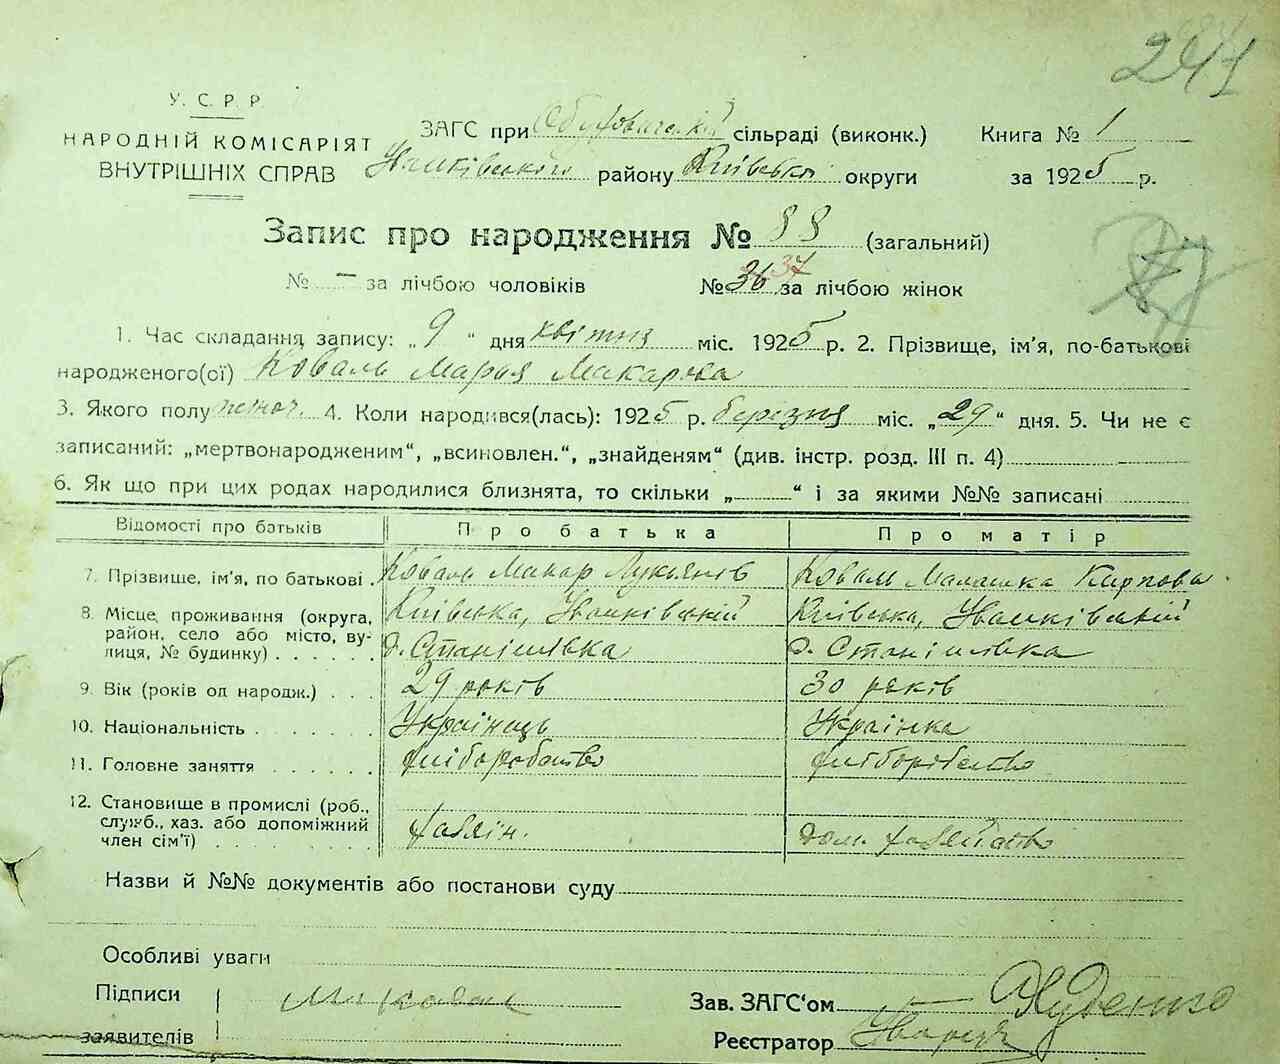 241
У. С. Р. Р.
НАРОДНІЙ КОМІСАРІЯТ
ВНУТРІШНІХ СПРАВ
ЗАГС при Обуховичській сільраді (виконк.) Книга № 1
Іванківського району Київської округи за 1925 р.
Запис про народження № 88 (загальний)
№ – за лічбою чоловіків № 36 37 за лічбою жінок
1. Час складання запису: „9“ дня квітня міс. 1925 р. 2. Прізвище, ім'я, по-батькові
народженого(ої) Коваль Марія Макарова
3. Якого полу жіноч. 4. Коли народився(лась): 1925 р. березня міс. „29“ дня. 5. Чи не є
записаний: „мертвонародженим“, „всиновлен.“, „знайденям“ (див. інстр. розд. III п. 4)
6. Як що при цих родах народилися близнята, то скільки „ “ і за якими №№ записані
Відомості про батьків Про батька Про матір
7. Прізвище, ім'я, по батькові . Коваль Макар Лукьянів Коваль Малашка Карпова
8. Місце проживання (округа, Київська, Іванківський Київська, Іванківський
район, село або місто, ву-
лиця, № будинку) . . . . . . д. Станішівка д. Станішівка
9. Вік (років од народж.) . . . 29 років 30 років
10. Національність . . . . . . . Українець Українка
11. Головне заняття . . . . . . хліборобство хліборобство
12. Становище в промислі (роб.,
служб., хаз. або допоміжний хазяін. дом. хазяйство
член сім'ї) . . . . . . . . .
Назви й №№ документів або постанови суду
Особливі уваги
Підписи
заявителів М Коваль
Зав. ЗАГС'ом
Реєстратор